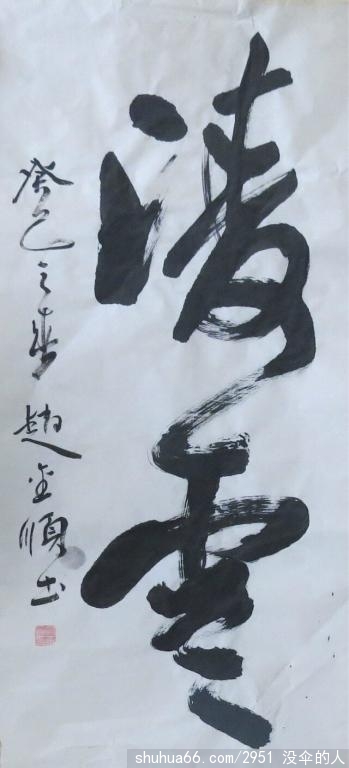 凌云
癸巳之春 赵金顺书
shuhua66.com/2951 没伞的人